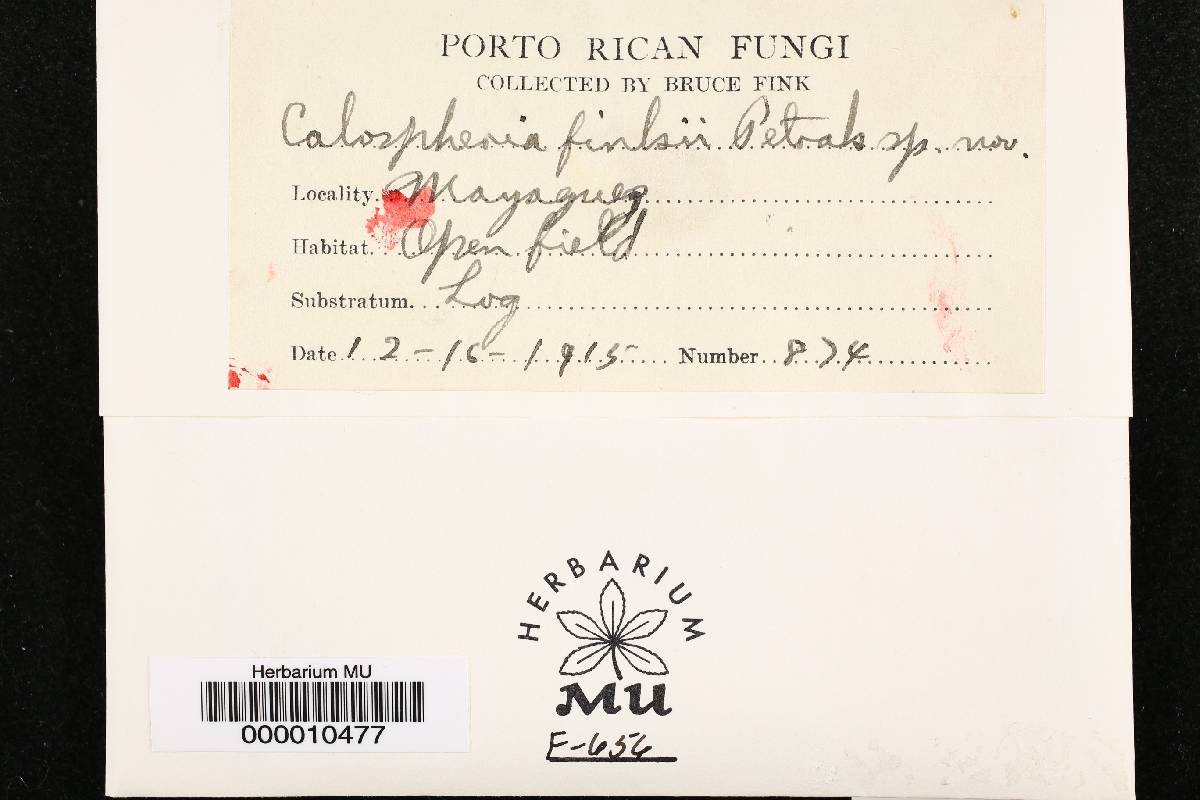 PORTO RICAN FUNGI
COLLECTED BY BRUCE FINK
Calospheria finksii Petrak sp. nov.
Locality. Mayaguez
Habitat. Open field
Substratum. Log
Date 12-16-1915 Number 874
HERBARIUM
MU
F-656
Herbarium MU
000010477